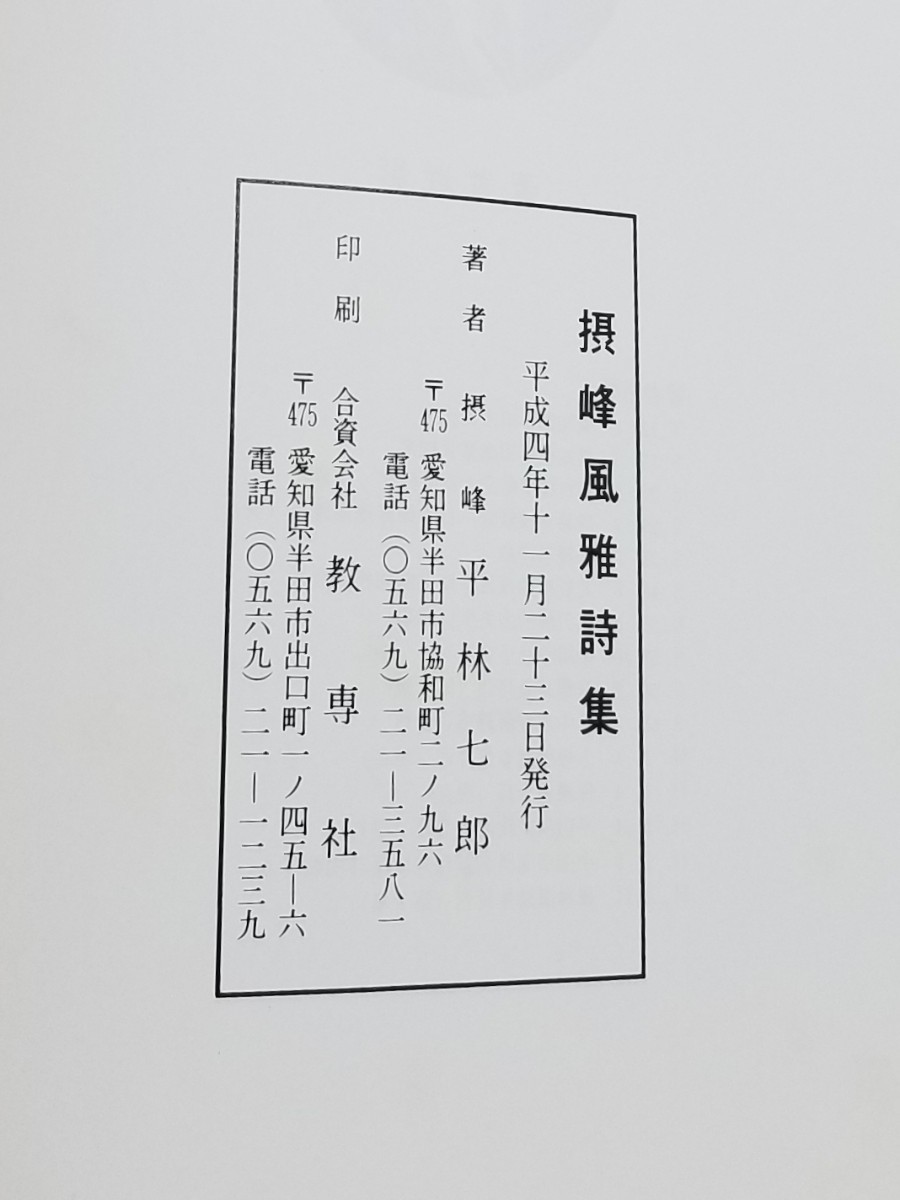 摂峰風雅詩集
平成四年十一月二十三日発行
著者 摂峰 平林七郎
〒475 愛知県半田市協和町二ノ九六
電話（〇五六九）二一―三五八一
印刷 合資会社 教専社
〒475 愛知県半田市出口町一ノ四五―六
電話（〇五六九）二一―一二三九